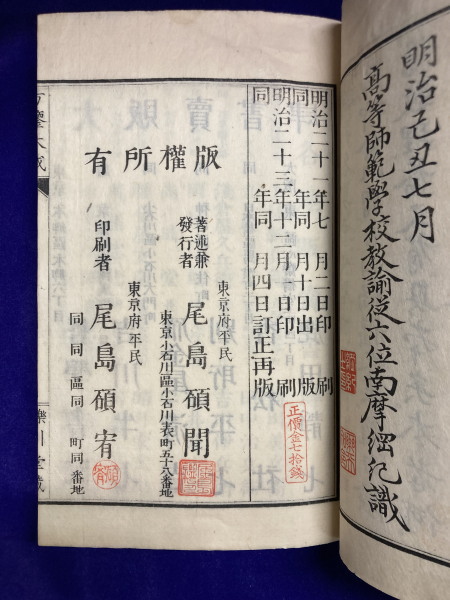 明治己丑七月
高等師範學校教諭從六位南摩綱紀識
明治二十一年七月二日印刷
同年同月十日出版
明治二十三年十二月 日印刷
同年同月四日訂正再版
正價金七拾錢
版權所有
東京府平民
著述兼發行者 尾島碩聞
東京小石川區小石川表町五十八番地
東京府平民
印刷者 尾島碩宥
同同區同町同番地